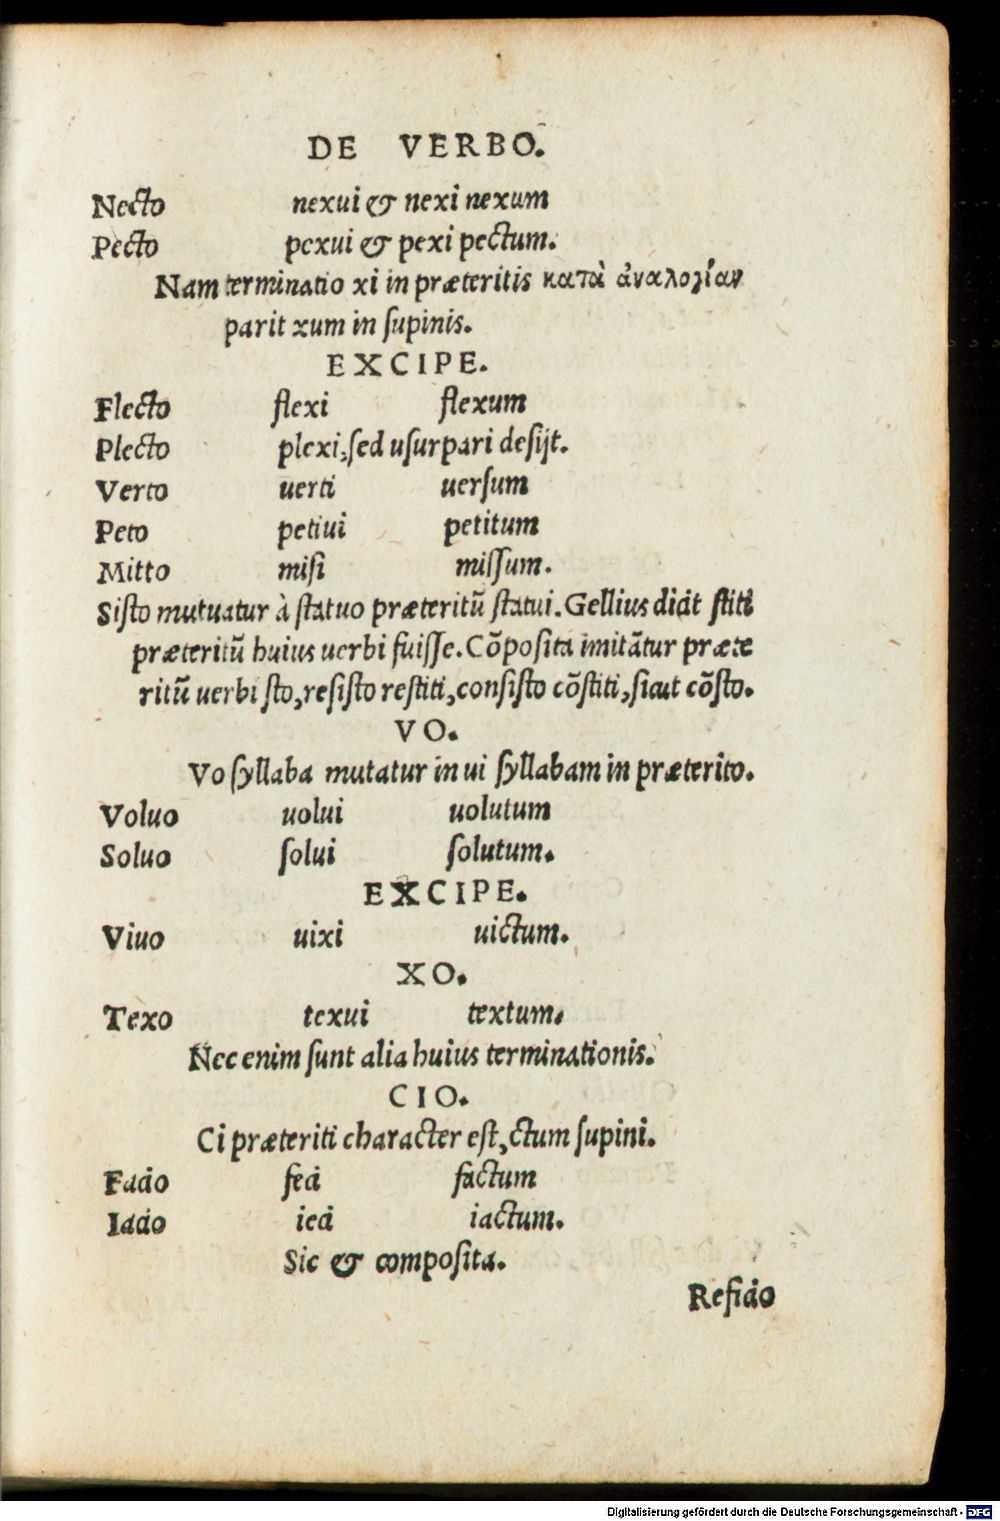 DE VERBO.
Necto nexui & nexi nexum
Pecto pexui & pexi pectum.
Nam terminatio xi in præteritis κατὰ ἀναλογίαν
parit xum in ſupinis.
EXCIPE.
Flecto flexi flexum
Plecto plexi, ſed uſurpari deſijt.
Verto uerti uerſum
Peto petiui petitum
Mitto miſi miſſum.
Siſto mutuatur à ſtatuo præteritũ ſtatui. Gellius dicit ſtiti
præteritũ huius uerbi fuiſſe. Cõpoſita imitãtur præte
ritũ uerbi ſto, reſiſto reſtiti, conſiſto cõſtiti, ſicut cõſto.
VO.
Vo ſyllaba mutatur in ui ſyllabam in præterito.
Voluo uolui uolutum
Soluo ſolui ſolutum.
EXCIPE.
Viuo uixi uictum.
XO.
Texo texui textum.
Nec enim ſunt alia huius terminationis.
CIO.
Ci præteriti character eſt, ctum ſupini.
Facio feci factum
Iacio ieci iactum.
Sic & compoſita.
Reficio
Digitalisierung gefördert durch die Deutsche Forschungsgemeinschaft - DFG